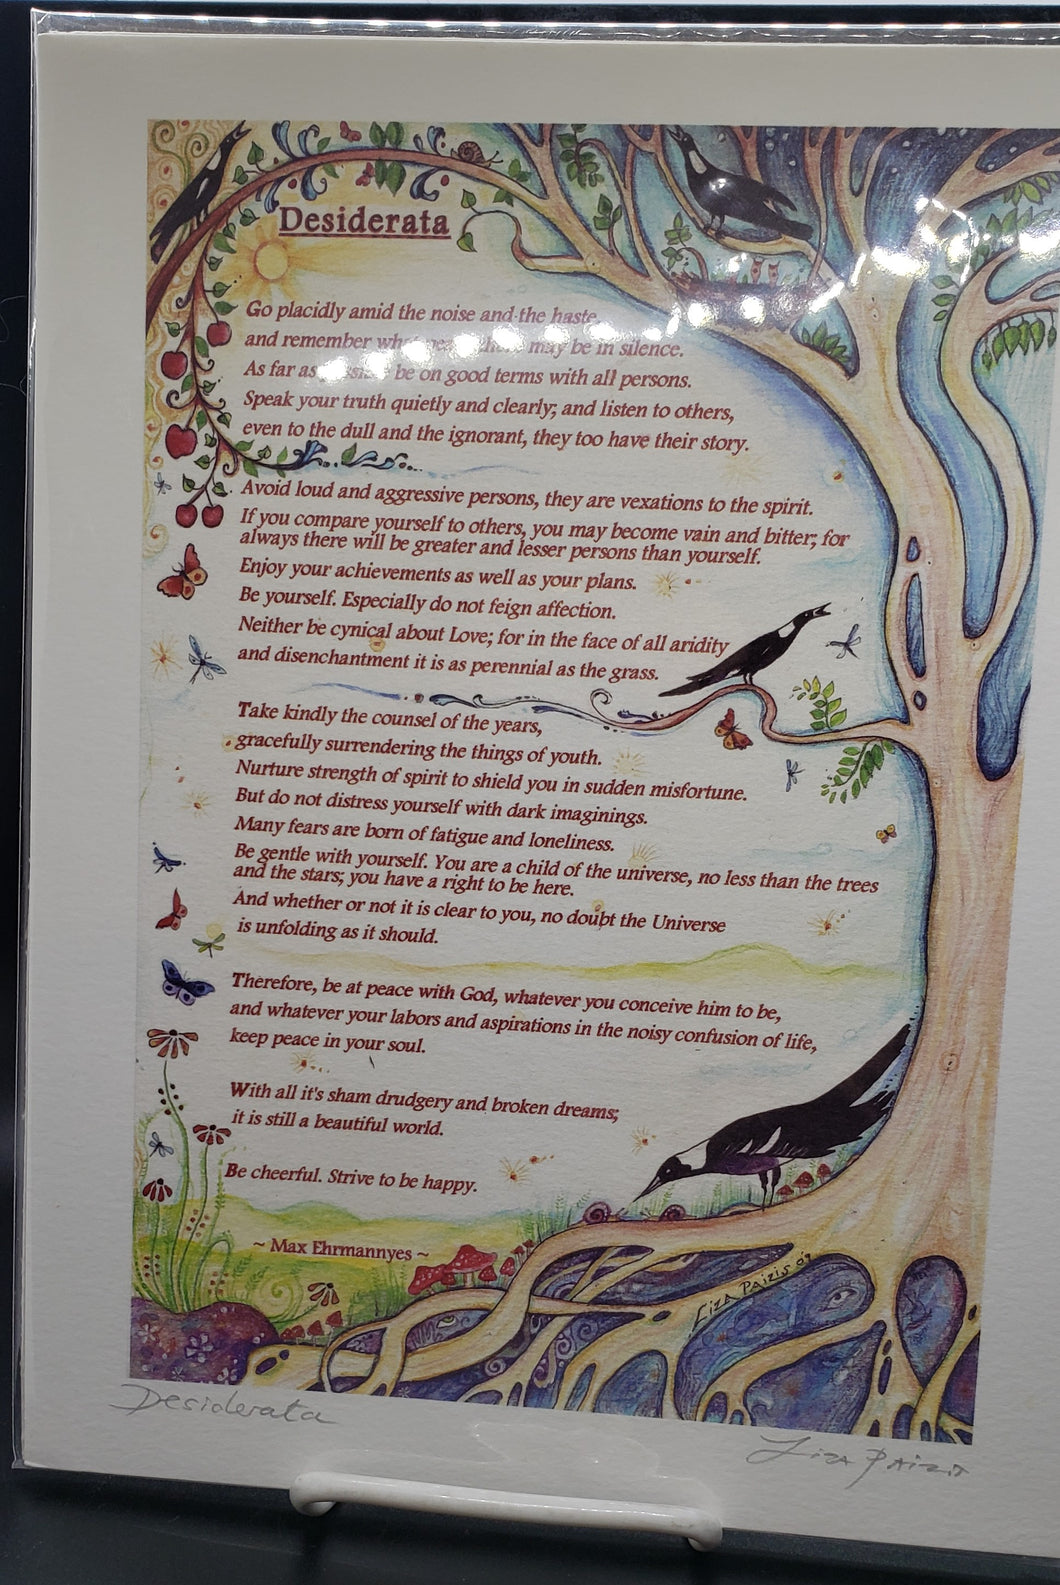 Desiderata
Go placidly amid the noise and the haste,
and remember what peace there may be in silence.
As far as possible be on good terms with all persons.
Speak your truth quietly and clearly; and listen to others,
even to the dull and the ignorant, they too have their story.
Avoid loud and aggressive persons, they are vexations to the spirit.
If you compare yourself to others, you may become vain and bitter; for
always there will be greater and lesser persons than yourself.
Enjoy your achievements as well as your plans.
Be yourself. Especially do not feign affection.
Neither be cynical about Love; for in the face of all aridity
and disenchantment it is as perennial as the grass.
Take kindly the counsel of the years,
gracefully surrendering the things of youth.
Nurture strength of spirit to shield you in sudden misfortune.
But do not distress yourself with dark imaginings.
Many fears are born of fatigue and loneliness.
Be gentle with yourself. You are a child of the universe, no less than the trees
and the stars; you have a right to be here.
And whether or not it is clear to you, no doubt the Universe
is unfolding as it should.
Therefore, be at peace with God, whatever you conceive him to be,
and whatever your labors and aspirations in the noisy confusion of life,
keep peace in your soul.
With all it's sham drudgery and broken dreams;
it is still a beautiful world.
Be cheerful. Strive to be happy.
~ Max Ehrmannyes ~
Liza Paizis 09
Desiderata
Liza Paizis